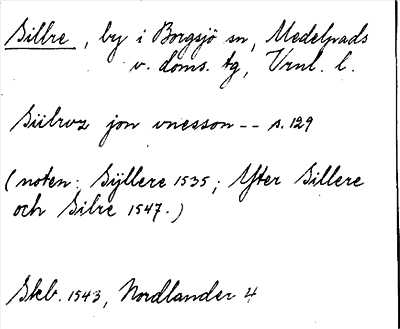 Sillre, by i Borgsjö sn, Medelpads
v. doms. tg, Vrnl. l.
Siibroz jon vnesson -- s. 129
(noten: Sÿllere 1535; Yster Sillere
och Silre 1547.)
Skb. 1543, Nordlander 4